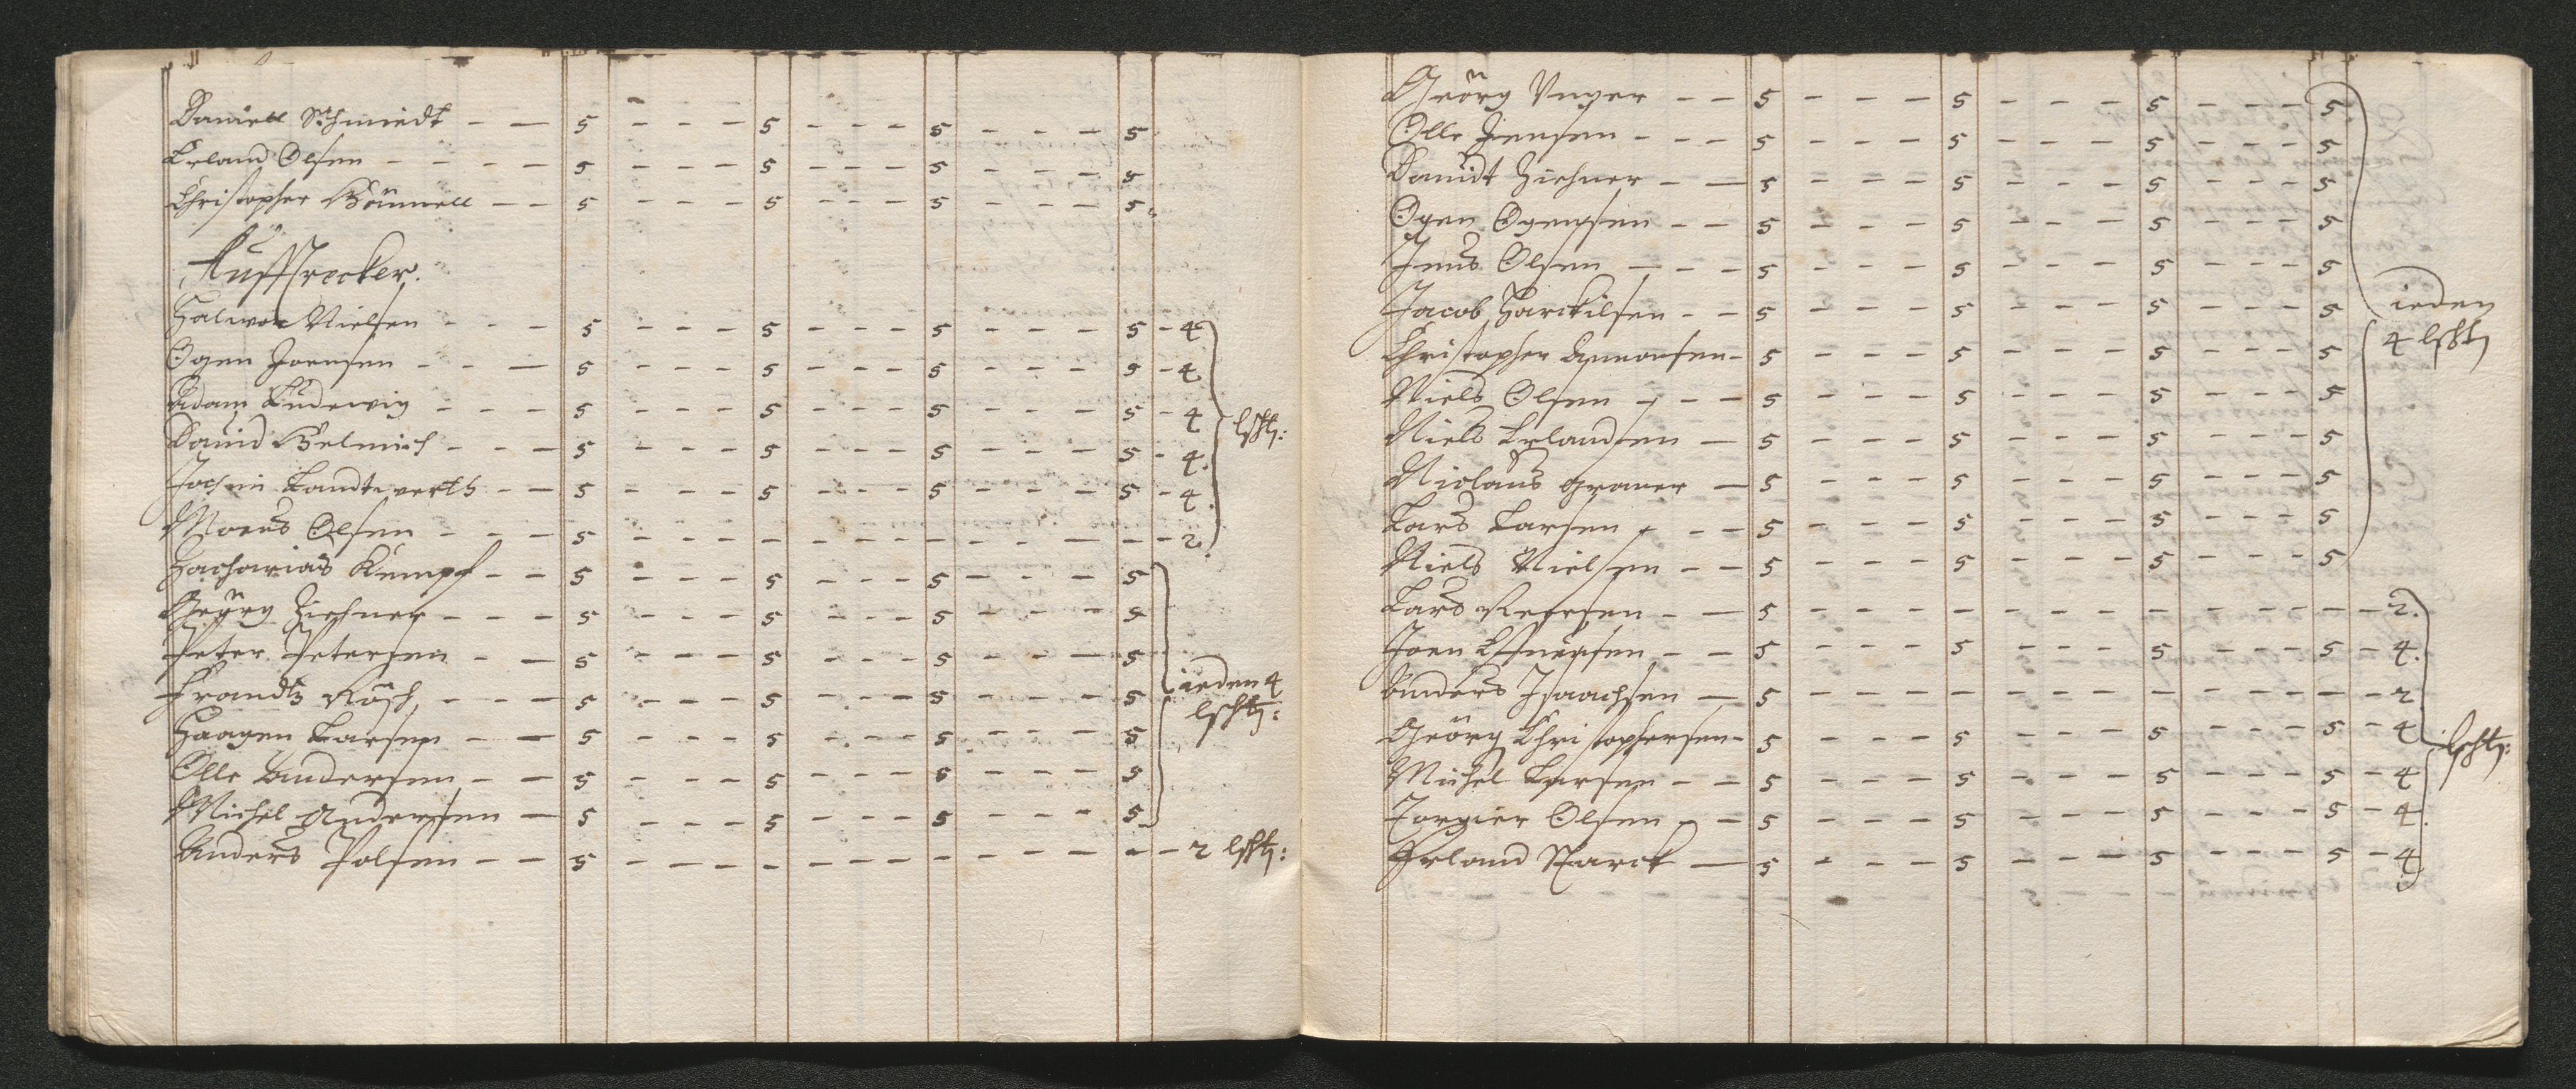 Daniell Schmiedt - — 5 - - - 5 - - - 5 - - - 5
Erland Olsen - - - — 5 - - - 5 - - - 5 - - - 5
Christopher Bömmell - - 5 - - - 5 - - - 5 - - - 5
Auffstrecker.
Halwor Nielsen - - - 5 - - - 5 - - - 5 - - - 5 - 4
Ogen Joensen - - — 5 - - - 5 - - - 5 - - - 5 - 4
Adam Ludewig - - - 5 - - - 5 - - - 5 - - - 5 - 4
lßhtz:
David Helmich - - - 5 - - - 5 - - - 5 - - - 5 - 4.
Jochim Landtwerth - — 5 - - - 5 - - - 5 - - - 5 - 4
Moens Olsen - - - 5 - - - - - - - - - 2.
Zacharias Kempf - - 5 - - - 5 - - - 5 - - - 5
Georg Ziehner - - - 5 - - - 5 - - - 5 - - - 5
Peter Petersen - — 5 - - - 5 - - - 5 - - - 5
Frandtz Rösch - - - 5 - - - 5 - - - 5 - - - 5
ieden 4
lßhtz:
Haagen Larsen - — 5 - - - 5 - - - 5 - - - 5
Olle Andersen - — 5 - - - 5 - - - 5 - - - 5
Michel Andersen — 5 - - - 5 - - - 5 - - - 5
Anders Polsen - - 5 - - - - - - - - - 2 lßhtz:
Georg Unger - - 5 - - - 5 - - - 5 - - - 5
Olle Jensen - - - 5 - - - 5 - - - 5 - - - 5
Davidt Ziehner - — 5 - - - 5 - - - 5 - - - 5
Ogen Ogensen - - 5 - - - 5 - - - 5 - - - 5
Jens Olsen - - - 5 - - - 5 - - - 5 - - - 5
Jacob Harckilsen - - 5 - - - 5 - - - 5 - - - 5
ieden
4 lßhtz
Christopher Amonsen - 5 - - - 5 - - - 5 - - - 5
Niels Olsen - - - 5 - - - 5 - - - 5 - - - 5
Niels Erlandsen — 5 - - - 5 - - - 5 - - - 5
Niclaus Graner — 5 - - - 5 - - - 5 - - - 5
Lars Larsen - - - 5 - - - 5 - - - 5 - - - 5
Niels Nielsen - - 5 - - - 5 - - - 5 - - - 5
Lars Reersen - — 5 - - - - - - - - - 2.
Joen - - 5 - - - 5 - - - 5 - - - 5 - 4.
Anders Isaachsen — 5 - - - - - - - - - 2
Georg Christophersen - 5 - - - 5 - - - 5 - - - 5 - 4
lßhtz:
Michel Larsen - - 5 - - - 5 - - - 5 - - - 5 - 4
Torgier Olsen - - 5 - - - 5 - - - 5 - - - 5 - 4.
Erland Starck — 5 - - - 5 - - - 5 - - - 5 - 4